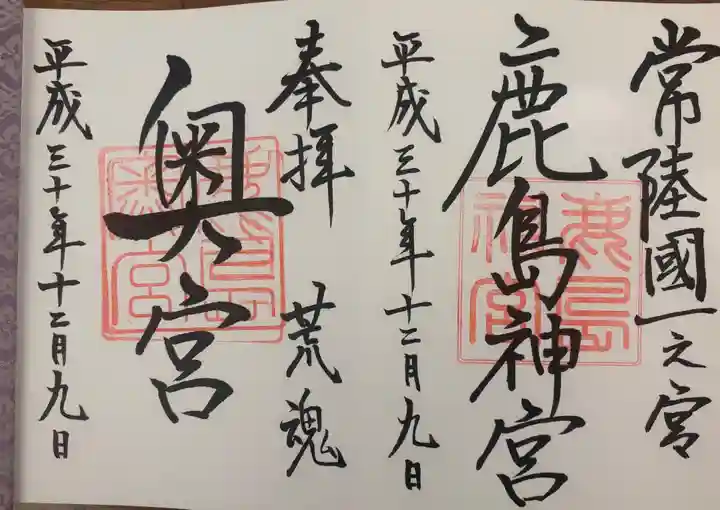 常陸國一之宮
鹿島神宮
平成三十年十二月九日
奉拝 荒魂
奥宮
平成三十年十二月九日
鹿島
神宮